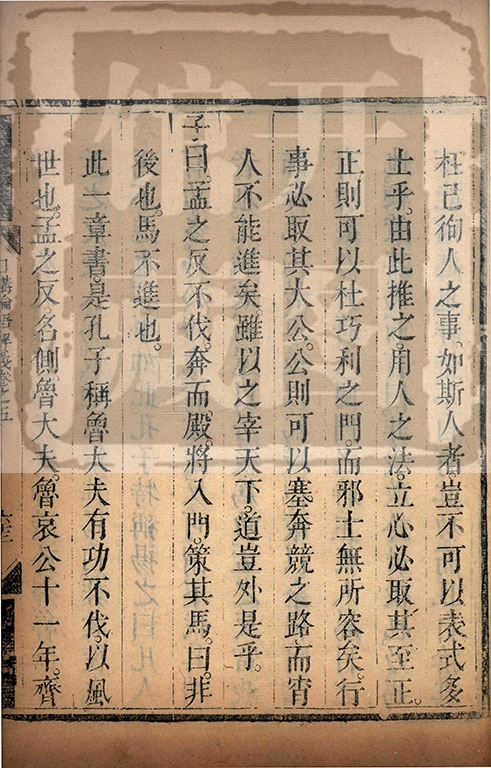 枉己徇人之事。如斯人者豈不可以表式多
士乎。由此推之。用人之法。立心必取其至正。
正則可以杜巧利之門。而邪士無所容矣。行
事必取其大公。公則可以塞奔競之路。而宵
人不能進矣。雖以之宰天下。道豈外是乎。
子曰孟之反不伐。奔而殿。將入門。策其馬。曰。非
敢後也。馬不進也。
此一章書。是孔子稱魯大夫有功不伐。以風
世也。孟之反名側。魯大夫。魯哀公十一年。齊
日講論語解義卷之五